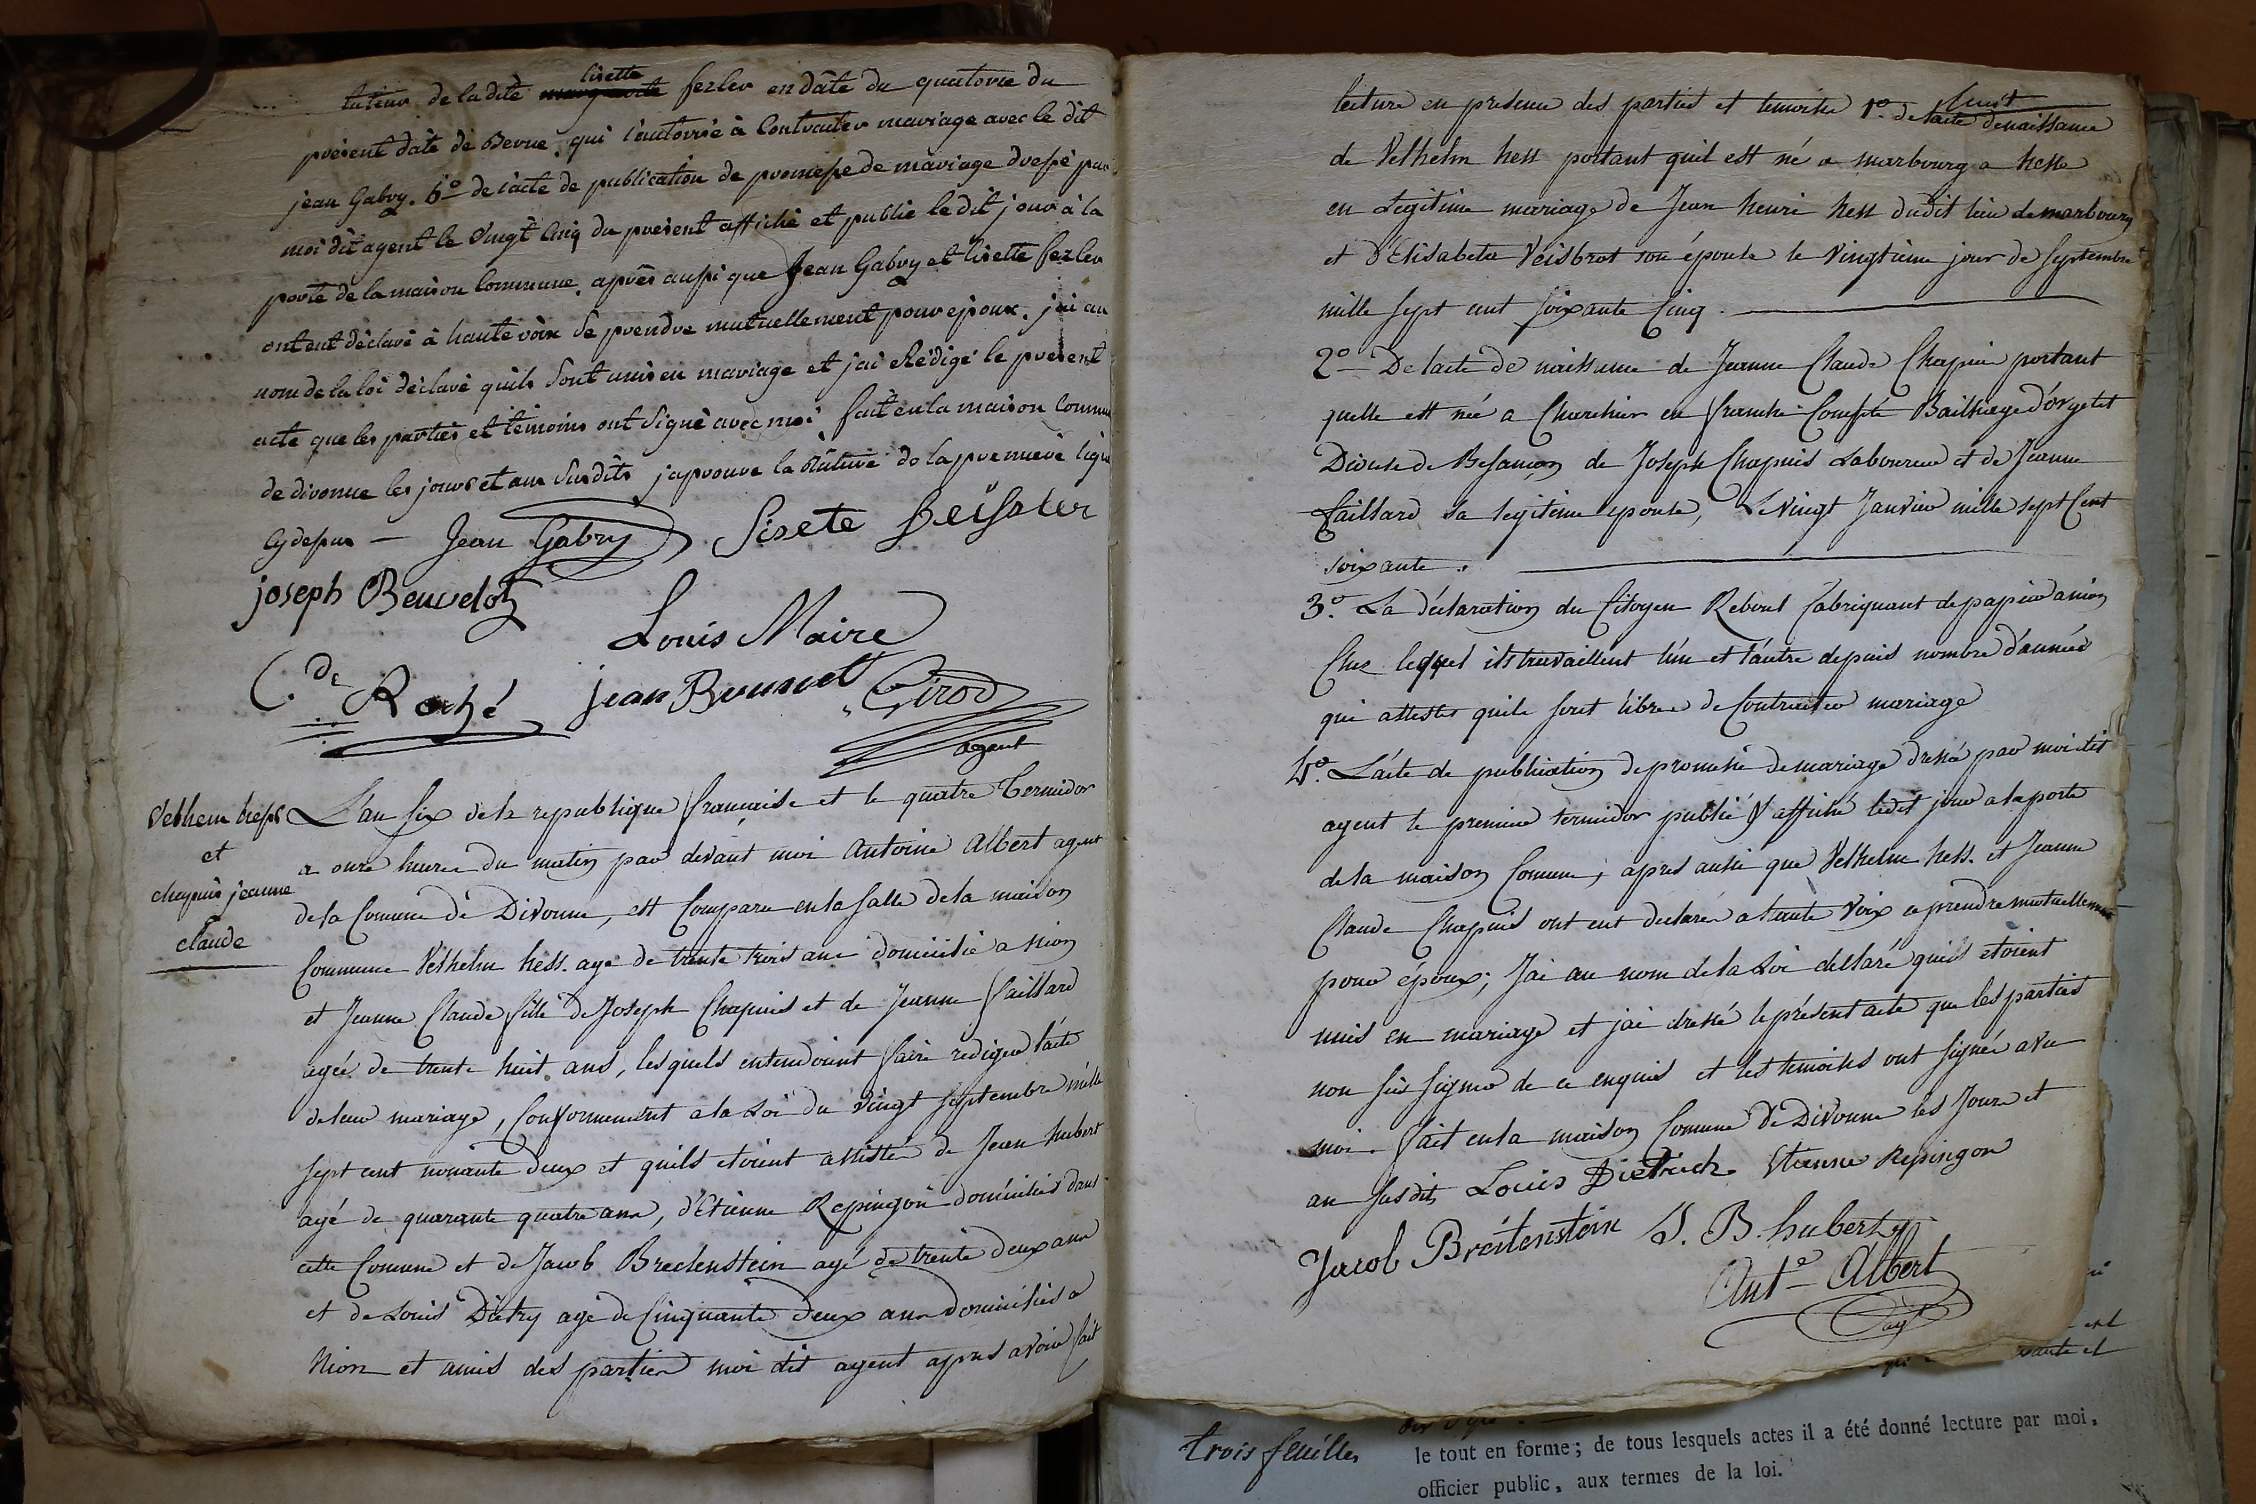 tuteur de la dite lisette fezler en dâte du quatorze du
présent dâté de Berne qui l'autorise à Contracter mariage avec le dit
jean Gabry. 6º de l'acte de publication de promesse de mariage dressé par
moi dit agent le Vingt Cinq du présent affiché et publié le dit jour à la
porte de la maison Commune, après aussi que Jean Gabry et lisette fezler
ont eut déclaré à haute voix Se prendre mutuellement pour epoux. jai au
nom de la loi déclaré quils Sont unis en mariage et jai Rédigé le présent
acte que les parties et témoins ont Signé avec moi fait en la maison Commune
de divonne les jours et an Susdits japrouve la Râture de la premiere ligne
Cy dessus — Jean Gabry Lisete Feissler
joseph Beuvelot
Louis Maire
C. de Roché jean Brunet Girod
agent
Velhem hess
et
chapuis jeanne
claude
L'an six de la republique française et le quatre termidor
a onze heures du matin par devant moi Antoine Albert agent
de la Comune de Divonne, est Comparu en la Salle de la maison
Commune Velhelm hess. agé de trente trois ans domicilié a Nion
et Jeanne Claude fille de Joseph Chapuis et de Jeanne faillard
agée de trente huit ans, lesquels entendoient faire rediger l'acte
de leur mariage, Conformement a la Loi du vingt septembre mille
sept cent nonante deux et quils etoient assistés de Jean hubert
agé de quarante quatre ans, d'Etienne Repingon domiciliés dans
cette Comune et de Jacob Bredenstein agé de trente deux ans
et de Louis Dietry agé de Cinquante deux ans domiciliés a
Nion et amis des parties moi dit agent apres avoir fait
lecture en presence des parties et temoins 1º. de lacte de naissance
de Velhelm hess portant quil est né a marbourg a hesse
en Legitime mariage de Jean henri hess dudit lieu de marbourg
et d'Elisabeta Veisbrot son épouse le Vingtieme jour de septembre
mille sept cent soixante Cinq.
2º De lacte de naissance de Jeanne Claude Chapuis portant
quelle est née a Charchier en franche Compté Bailliage d'orgelet
Diocese de Besançon de Joseph Chapuis Laboureur et de Jeanne
faillard sa legitime epouse, Le vingt Janvier mille sept Cent
soixante.
3º. La déclaration du Citoyen Reboul fabriquant de papier a nion
Chez lequel ils travaillent l'un et l'autre depuis nombre d'années
qui atteste quils sont libres de Contracter mariage
4º. L'acte de publication de promesse de mariage dressé par moi dit
agent le premier termidor publié & affiché ledit jour a la porte
de la maison Comune; apres aussi que Velhelm hess. et Jeanne
Claude Chapuis ont eut declaré a haute Voix ce prendre mutuellement
pour époux; Jai au nom de la Loi declaré quils etoient
unis en mariage et jai dressé le présent acte que les parties
non sus signer de ce enquis et les temoins ont signés avec
moi. fait en la maison Comune de Divonne les Jours et
an susdits Louis Dietrich Etienne Repingon
Jacob Breitenstein J. B. huberty
Ant.e Albert
agt
trois feuilles
le tout en forme; de tous lesquels actes il a été donné lecture par moi,
officier public, aux termes de la loi.